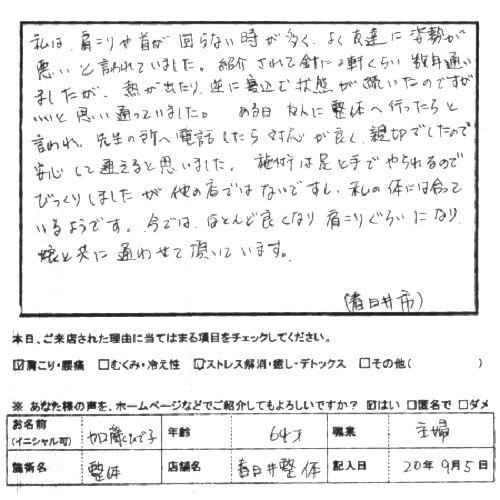 私は、肩こりや首が回らない時が多く、よく友達に姿勢が
悪いと言われていました。紹介されて針に2軒くらい数年通い
ましたが、熱が出たり、逆に身辺で状態が続いたのですが
いいと思い通っていました。 ある日友人に整体へ行ったらと
言われ、先生の所へ電話したら対応が良く、親切でしたので
安心して通えると思いました。施術は足と手でやられるので
びっくりしましたが他の店ではないですし、私の体には合って
いるようです。今では、ほとんど良くなり肩こりぐらいになり、
娘と共に通わせて頂いています。
(春日井市)
本日、ご来店された理由に当てはまる項目をチェックしてください。
☑肩こり・腰痛 □むくみ・冷え性 ☑ストレス解消・癒し・デトックス □その他( )
※ あなた様の声を、ホームページなどでご紹介してもよろしいですか? ☑はい □匿名で □ダメ
お名前 (イニシャル可) 加藤ひで子 年齢 64才 職業 主婦
施術名 整体 店舗名 春日井整体 記入日 20年9月5日